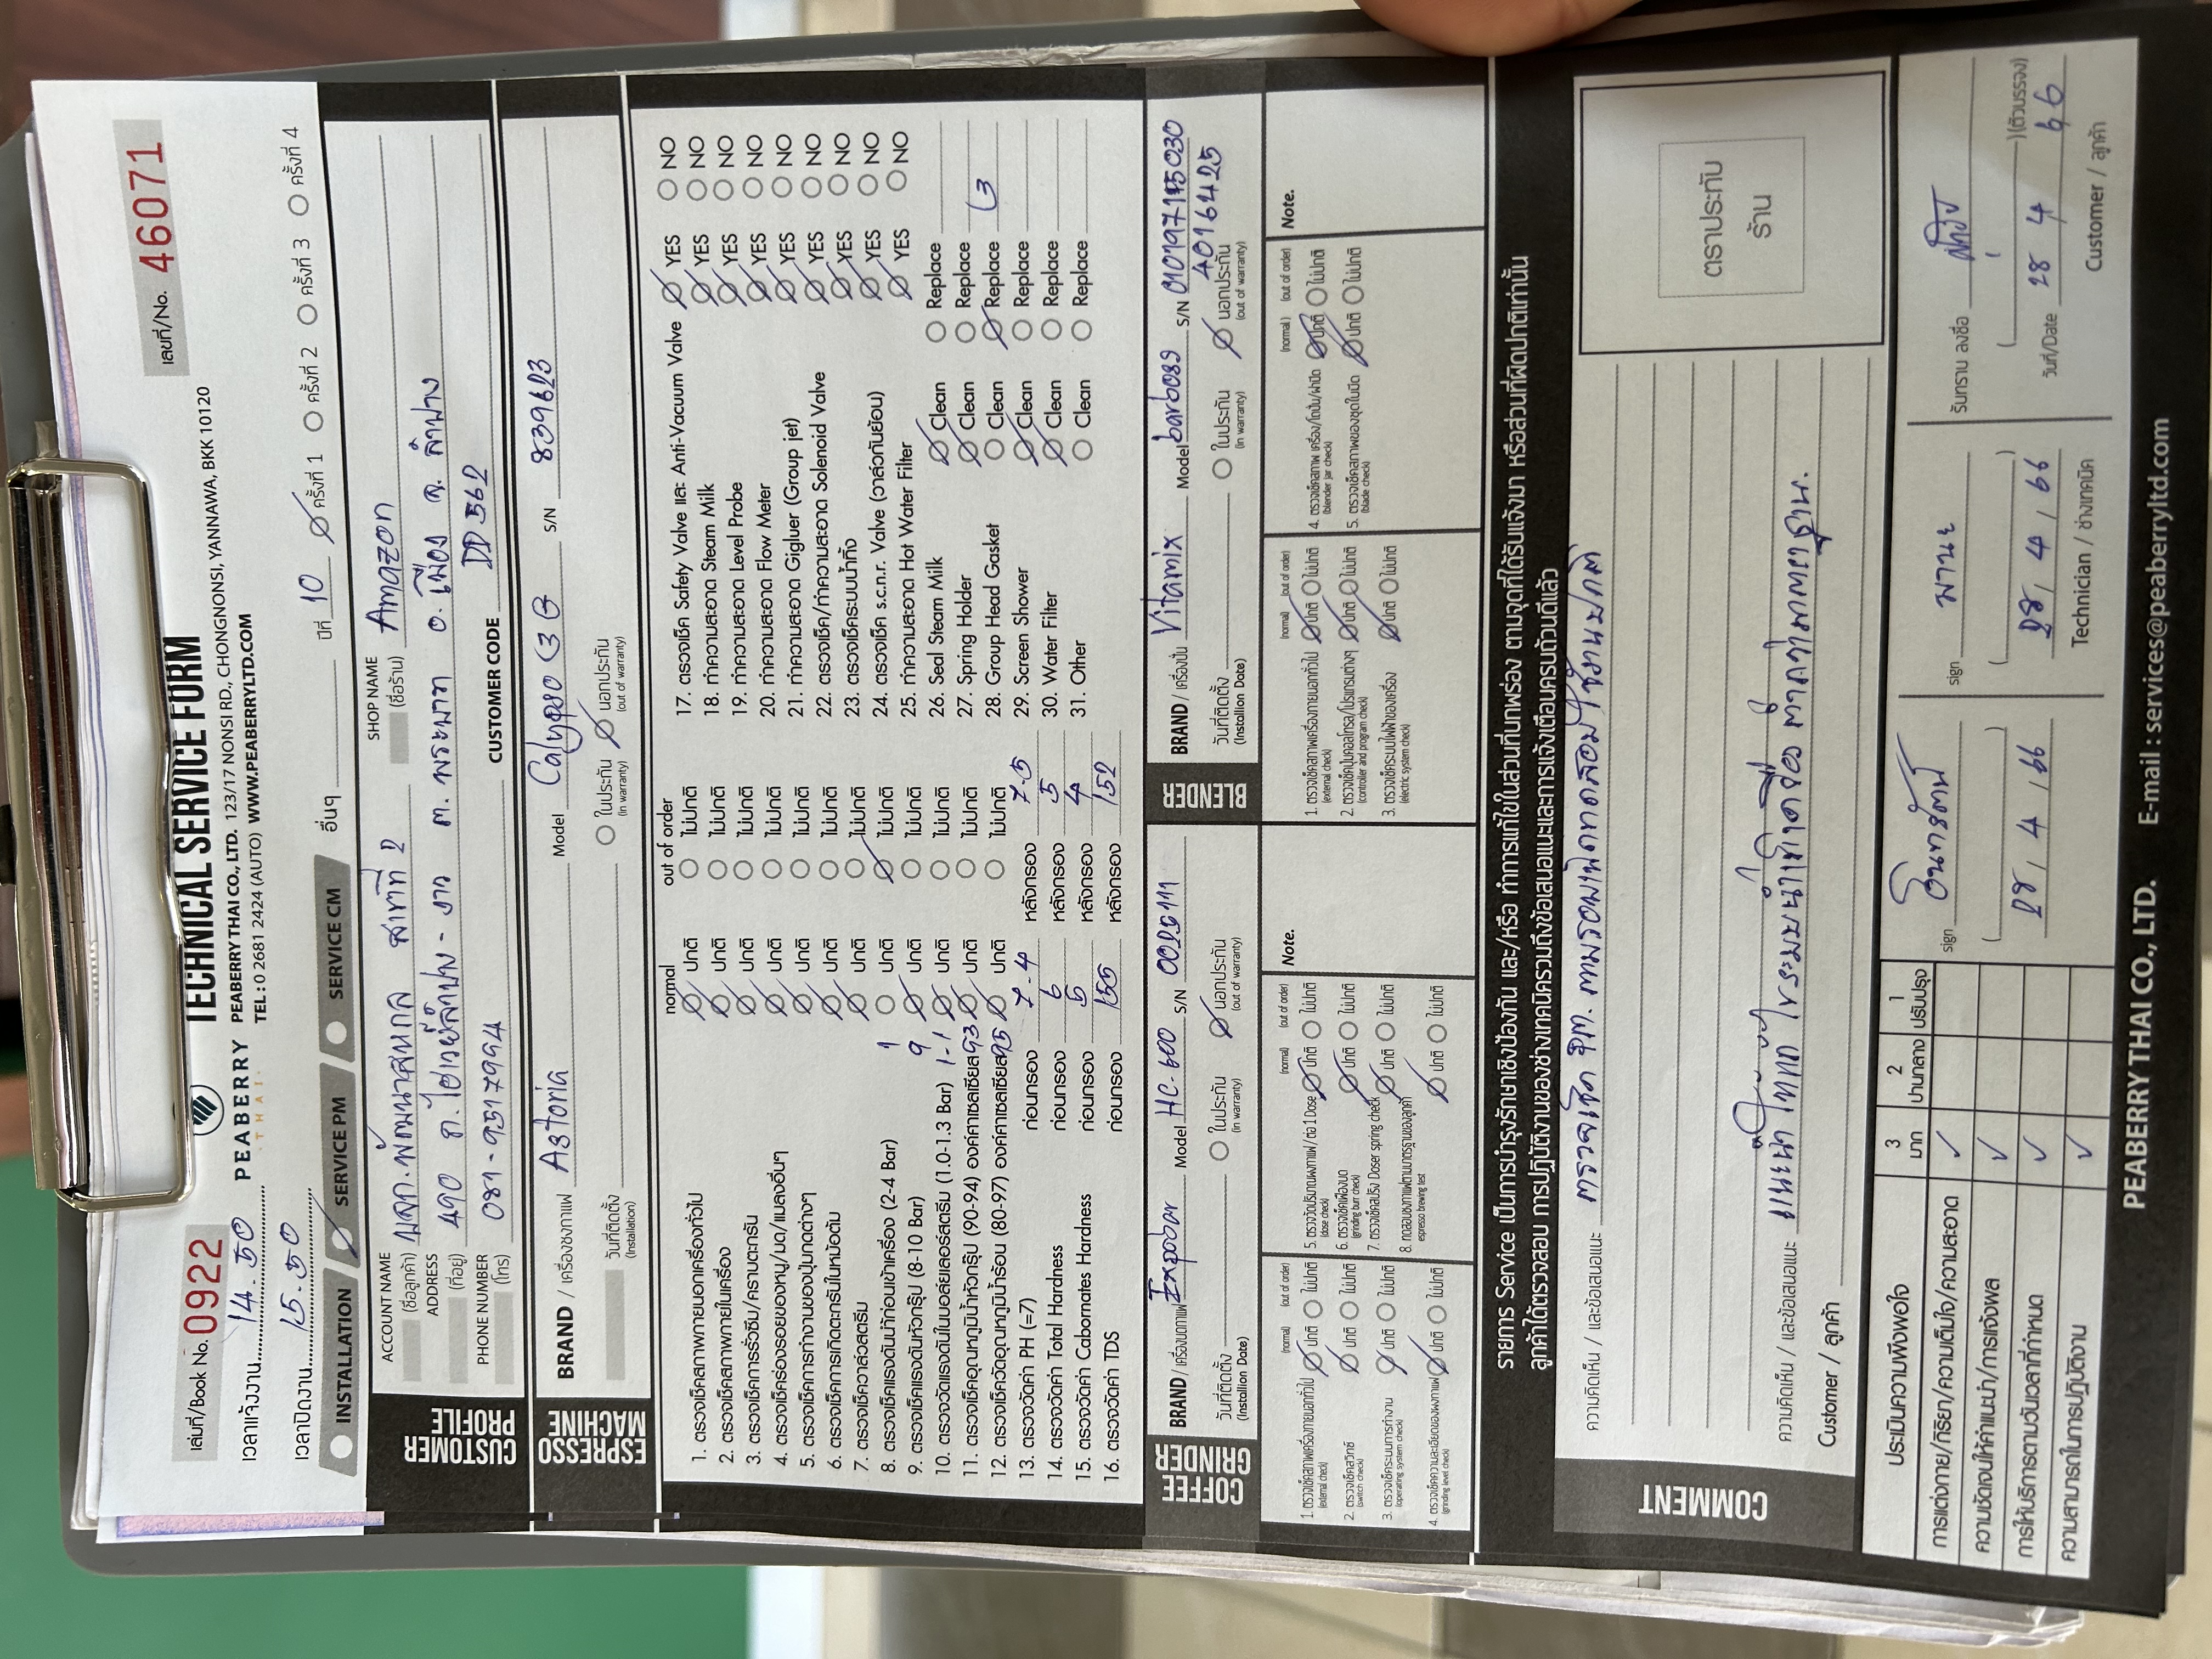 เล่มที่/Book No. 0922
เลขที่/No. 46071
TECHNICAL SERVICE FORM
PEABERRY
THAI
PEABERRY THAI CO., LTD. 123/17 NONSI RD., CHONGNONSI, YANNAWA, BKK 10120
TEL : 0 2681 2424 (AUTO) WWW.PEABERRYLTD.COM
เวลาแจ้งงาน 14.50
เวลาปิดงาน 15.50
INSTALLATION SERVICE PM SERVICE CM อื่นๆ ปีที่ 10 ครั้งที่ 1 ครั้งที่ 2 ครั้งที่ 3 ครั้งที่ 4
CUSTOMER PROFILE
ACCOUNT NAME (ชื่อลูกค้า) บจก.พัฒนาสหกล สาขาที่ 2 SHOP NAME (ชื่อร้าน) Amazon
ADDRESS (ที่อยู่) 490 ถ.ไฮเวย์ลำปาง - งาว ต. พระบาท อ. เมือง จ. ลำปาง
PHONE NUMBER (โทร) 081-9517994 CUSTOMER CODE DD562
ESPRESSO MACHINE
BRAND / เครื่องชงกาแฟ Astoria Model Calypso 3 G S/N 839623
วันที่ติดตั้ง (Installation) ในประกัน (in warranty) นอกประกัน (out of warranty)
normal out of order
1. ตรวจเช็คสภาพภายนอกเครื่องทั่วไป ปกติ ไม่ปกติ
2. ตรวจเช็คสภาพภายในเครื่อง ปกติ ไม่ปกติ
3. ตรวจเช็คการรั่วซึม/คราบตะกรัน ปกติ ไม่ปกติ
4. ตรวจเช็คร่องรอยของหนู/มด/แมลงอื่นๆ ปกติ ไม่ปกติ
5. ตรวจเช็คการทำงานของปุ่มกดต่างๆ ปกติ ไม่ปกติ
6. ตรวจเช็คการเกิดตะกรันในหม้อต้ม ปกติ ไม่ปกติ
7. ตรวจเช็ควาล์วสตรีม ปกติ ไม่ปกติ
8. ตรวจเช็คแรงดันน้ำก่อนเข้าเครื่อง (2-4 Bar) 1 ปกติ ไม่ปกติ
9. ตรวจเช็คแรงดันหัวกรุ๊ป (8-10 Bar) 9 ปกติ ไม่ปกติ
10. ตรวจวัดแรงดันในบอล์ยเลอร์สตรีม (1.0-1.3 Bar) 1-1 ปกติ ไม่ปกติ
11. ตรวจเช็คอุณหภูมิน้ำหัวกรุ๊ป (90-94) องค์ศาเซลเซียส 93 ปกติ ไม่ปกติ
12. ตรวจเช็ควัดอุณหภูมิน้ำร้อน (80-97) องค์ศาเซลเซียส 95 ปกติ ไม่ปกติ
13. ตรวจวัดค่า PH (=7) ก่อนกรอง 7-4 หลังกรอง 7-5
14. ตรวจวัดค่า Total Hardness ก่อนกรอง 6 หลังกรอง 5
15. ตรวจวัดค่า Cabornates Hardness ก่อนกรอง 5 หลังกรอง 4
16. ตรวจวัดค่า TDS ก่อนกรอง 155 หลังกรอง 152
17. ตรวจเช็ค Safety Valve และ Anti-Vacuum Valve YES NO
18. ทำความสะอาด Steam Milk YES NO
19. ทำความสะอาด Level Probe YES NO
20. ทำความสะอาด Flow Meter YES NO
21. ทำความสะอาด Gigluer (Group jet) YES NO
22. ตรวจเช็ค/ทำความสะอาด Solenoid Valve YES NO
23. ตรวจเช็คระบบน้ำทิ้ง YES NO
24. ตรวจเช็ค s.c.n.r. Valve (วาล์วกันย้อน) YES NO
25. ทำความสะอาด Hot Water Filter YES NO
26. Seal Steam Milk Clean Replace
27. Spring Holder Clean Replace
28. Group Head Gasket Clean Replace 3
29. Screen Shower Clean Replace
30. Water Filter Clean Replace
31. Other Clean Replace
COFFEE GRINDER
BRAND / เครื่องบดกาแฟ Expobar Model HC-600 S/N 0025111
วันที่ติดตั้ง (Installion Date) ในประกัน (in warranty) นอกประกัน (out of warranty)
BLENDER
BRAND / เครื่องปั่น Vitamix Model barboss S/N 010197175030
4016425
วันที่ติดตั้ง (Installion Date) ในประกัน (in warranty) นอกประกัน (out of warranty)
(normal) (out of order)
1. ตรวจเช็คสภาพเครื่องภายนอกทั่วไป (external check) ปกติ ไม่ปกติ
2. ตรวจเช็คสวิทซ์ (switch check) ปกติ ไม่ปกติ
3. ตรวจเช็คระบบการทำงาน (operating system check) ปกติ ไม่ปกติ
4. ตรวจเช็คความละเอียดของผงกาแฟ (grinding level check) ปกติ ไม่ปกติ
(normal) (out of order)
5. ตรวจวัดปริมาณผงกาแฟ/ต่อ 1 Dose (dose check) ปกติ ไม่ปกติ
6. ตรวจเช็คเฟืองบด (grinding burr check) ปกติ ไม่ปกติ
7. ตรวจเช็คสปริง Doser spring check ปกติ ไม่ปกติ
8. ทดสอบชงกาแฟตามมาตรฐานของลูกค้า espresso brewing test ปกติ ไม่ปกติ
Note.
(normal) (out of order)
1. ตรวจเช็คสภาพเครื่องภายนอกทั่วไป (external check) ปกติ ไม่ปกติ
2. ตรวจเช็คปุ่มคอลโทรล/โปรแกรมต่างๆ (controller and program check) ปกติ ไม่ปกติ
3. ตรวจเช็คระบบไฟฟ้าของเครื่อง (electric system check) ปกติ ไม่ปกติ
(normal) (out of order)
4. ตรวจเช็คสภาพ เครื่อง/โถปั่น/ฝาปิด (blender jar check) ปกติ ไม่ปกติ
5. ตรวจเช็คสภาพของชุดใบมีด (blade check) ปกติ ไม่ปกติ
Note.
รายการ Service เป็นการบำรุงรักษาเชิงป้องกัน และ/หรือ ทำการแก้ไขในส่วนที่บกพร่อง ตามจุดที่ได้รับแจ้งมา หรือส่วนที่ผิดปกติเท่านั้น
ลูกค้าได้ตรวจสอบ การปฏิบัติงานของช่างเทคนิครวมถึงข้อเสนอแนะและการแจ้งเตือนครบถ้วนดีแล้ว
COMMENT
ความคิดเห็น / และข้อเสนอแนะ ตรวจเช็ค PM. ตามรอบเปิดทดสอบ ใช้งานปกติ
ความคิดเห็น / และข้อเสนอแนะ แนะนำ ให้แก้ ไขระบบน้ำเข้าเครื่อง ต่ำกว่ามาตราฐาน.
Customer / ลูกค้า
ตราประทับ
ร้าน
ประเมินความพึงพอใจ 3 มาก 2 ปานกลาง 1 ปรับปรุง
การแต่งกาย/กิริยา/ความเต็มใจ/ความสะอาด ✓
ความชัดเจนให้คำแนะนำ/การแจ้งผล ✓
การให้บริการตามวันเวลาที่กำหนด ✓
ความสามารถในการปฏิบัติงาน ✓
sign อินทรัตน์
28 / 4 / 66
sign มานะ
28 / 4 / 66
Technician / ช่างเทคนิค
รับทราบ ลงชื่อ
(ตัวบรรจง)
วันที่/Date 28 4 66
Customer / ลูกค้า
PEABERRY THAI CO., LTD. E-mail : services@peaberryltd.com